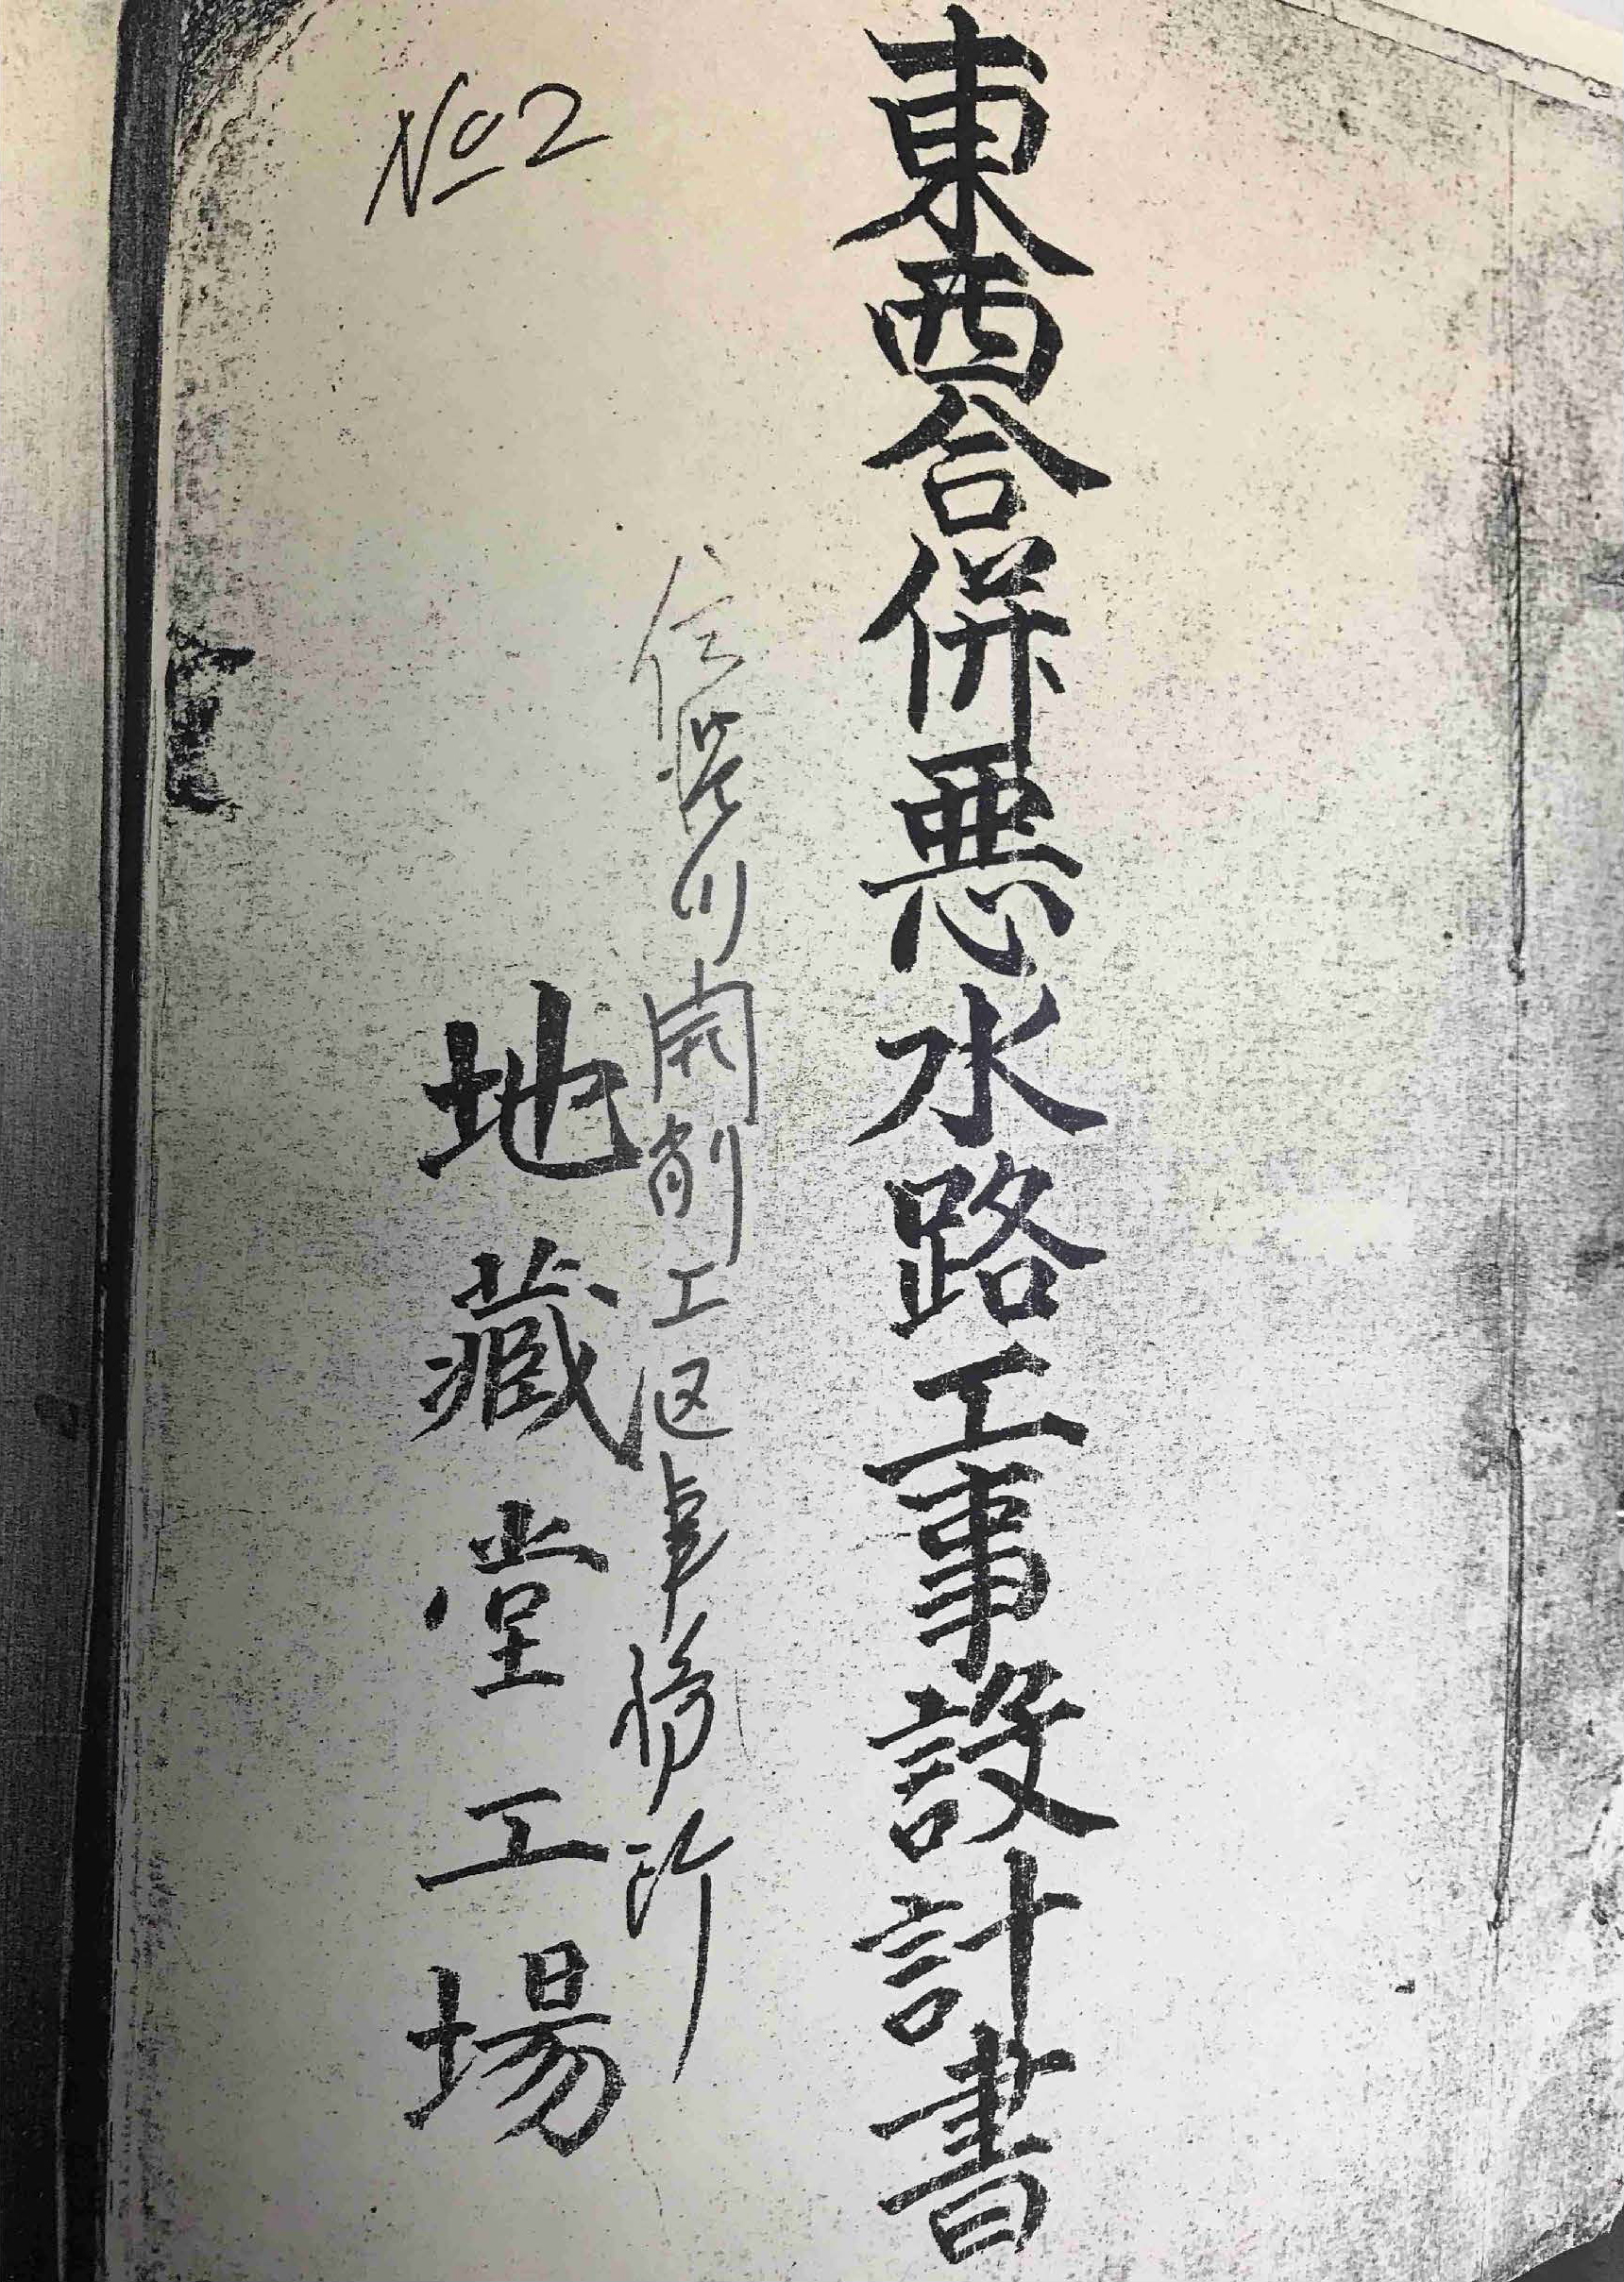 東西合併悪水路工事設計書
信濃川開削工区事務所
地藏堂工場
№2